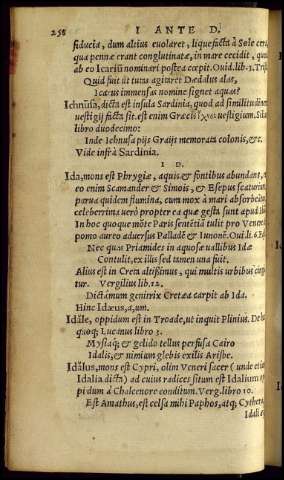 258 I ANTE D.
fiducia, dum altius euolaret, liquefacta à Sole cera,
qua pennæ erant conglutinatæ, in mare cecidit, quod
ab eo Icariũ nominari postea cœpit. Ouid. lib. 1. Trist.
Quid fuit ut tutas agitaret Dædalus alas,
Icarus immensas nomine signet aquas?
Ichnûsa, dicta est insula Sardinia, quod ad similitudinem
uestigij facta sit. est enim Græcis ἴχνος uestigium.
libro duodecimo:
Inde Ichnusa prjs Graijs memorata colonis, &c.
Vide infrà Sardinia.
I D.
Ida, mons est Phrygiæ, aquis & fontibus abundans,
eo enim Scamander & Simois, & Esepus scaturiunt
parua quidem flumina, cum mox à mari absorbeantur
celeberrima uerò propter ea quæ gesta sunt apud
In hoc quoque mõte Paris sentẽtiã tulit pro Venere
pomo aureo aduersus Palladẽ & Iunonẽ. Ouid. li. 6.
Nec quæ Priamides in aquosæ uallibus Idæ
Contulit, ex illis sed tamen una fuit.
Alius est in Creta altissimus, qui multis urbibus
tur. Vergilius lib. 12.
Dictámum genitrix Cretæa carpit ab Ida.
Hinc Idæus, a, um.
Idâle, oppidum est in Troade, ut inquit Plinius.
quoq; Lucanus libro 3.
Mysiaq; & gelido tellus perfusa Caico
Idalis, & nimium glebis exilis Arisbe.
Idălus, mons est Cypri, olim Veneri sacer (unde
Idalia dicta) ad cuius radices situm est Idalium
pidum à Chalcenore conditum. Verg. libro 10.
Est Amathus, est celsa mihi Paphos, atq; Cythera,
Idaliæ